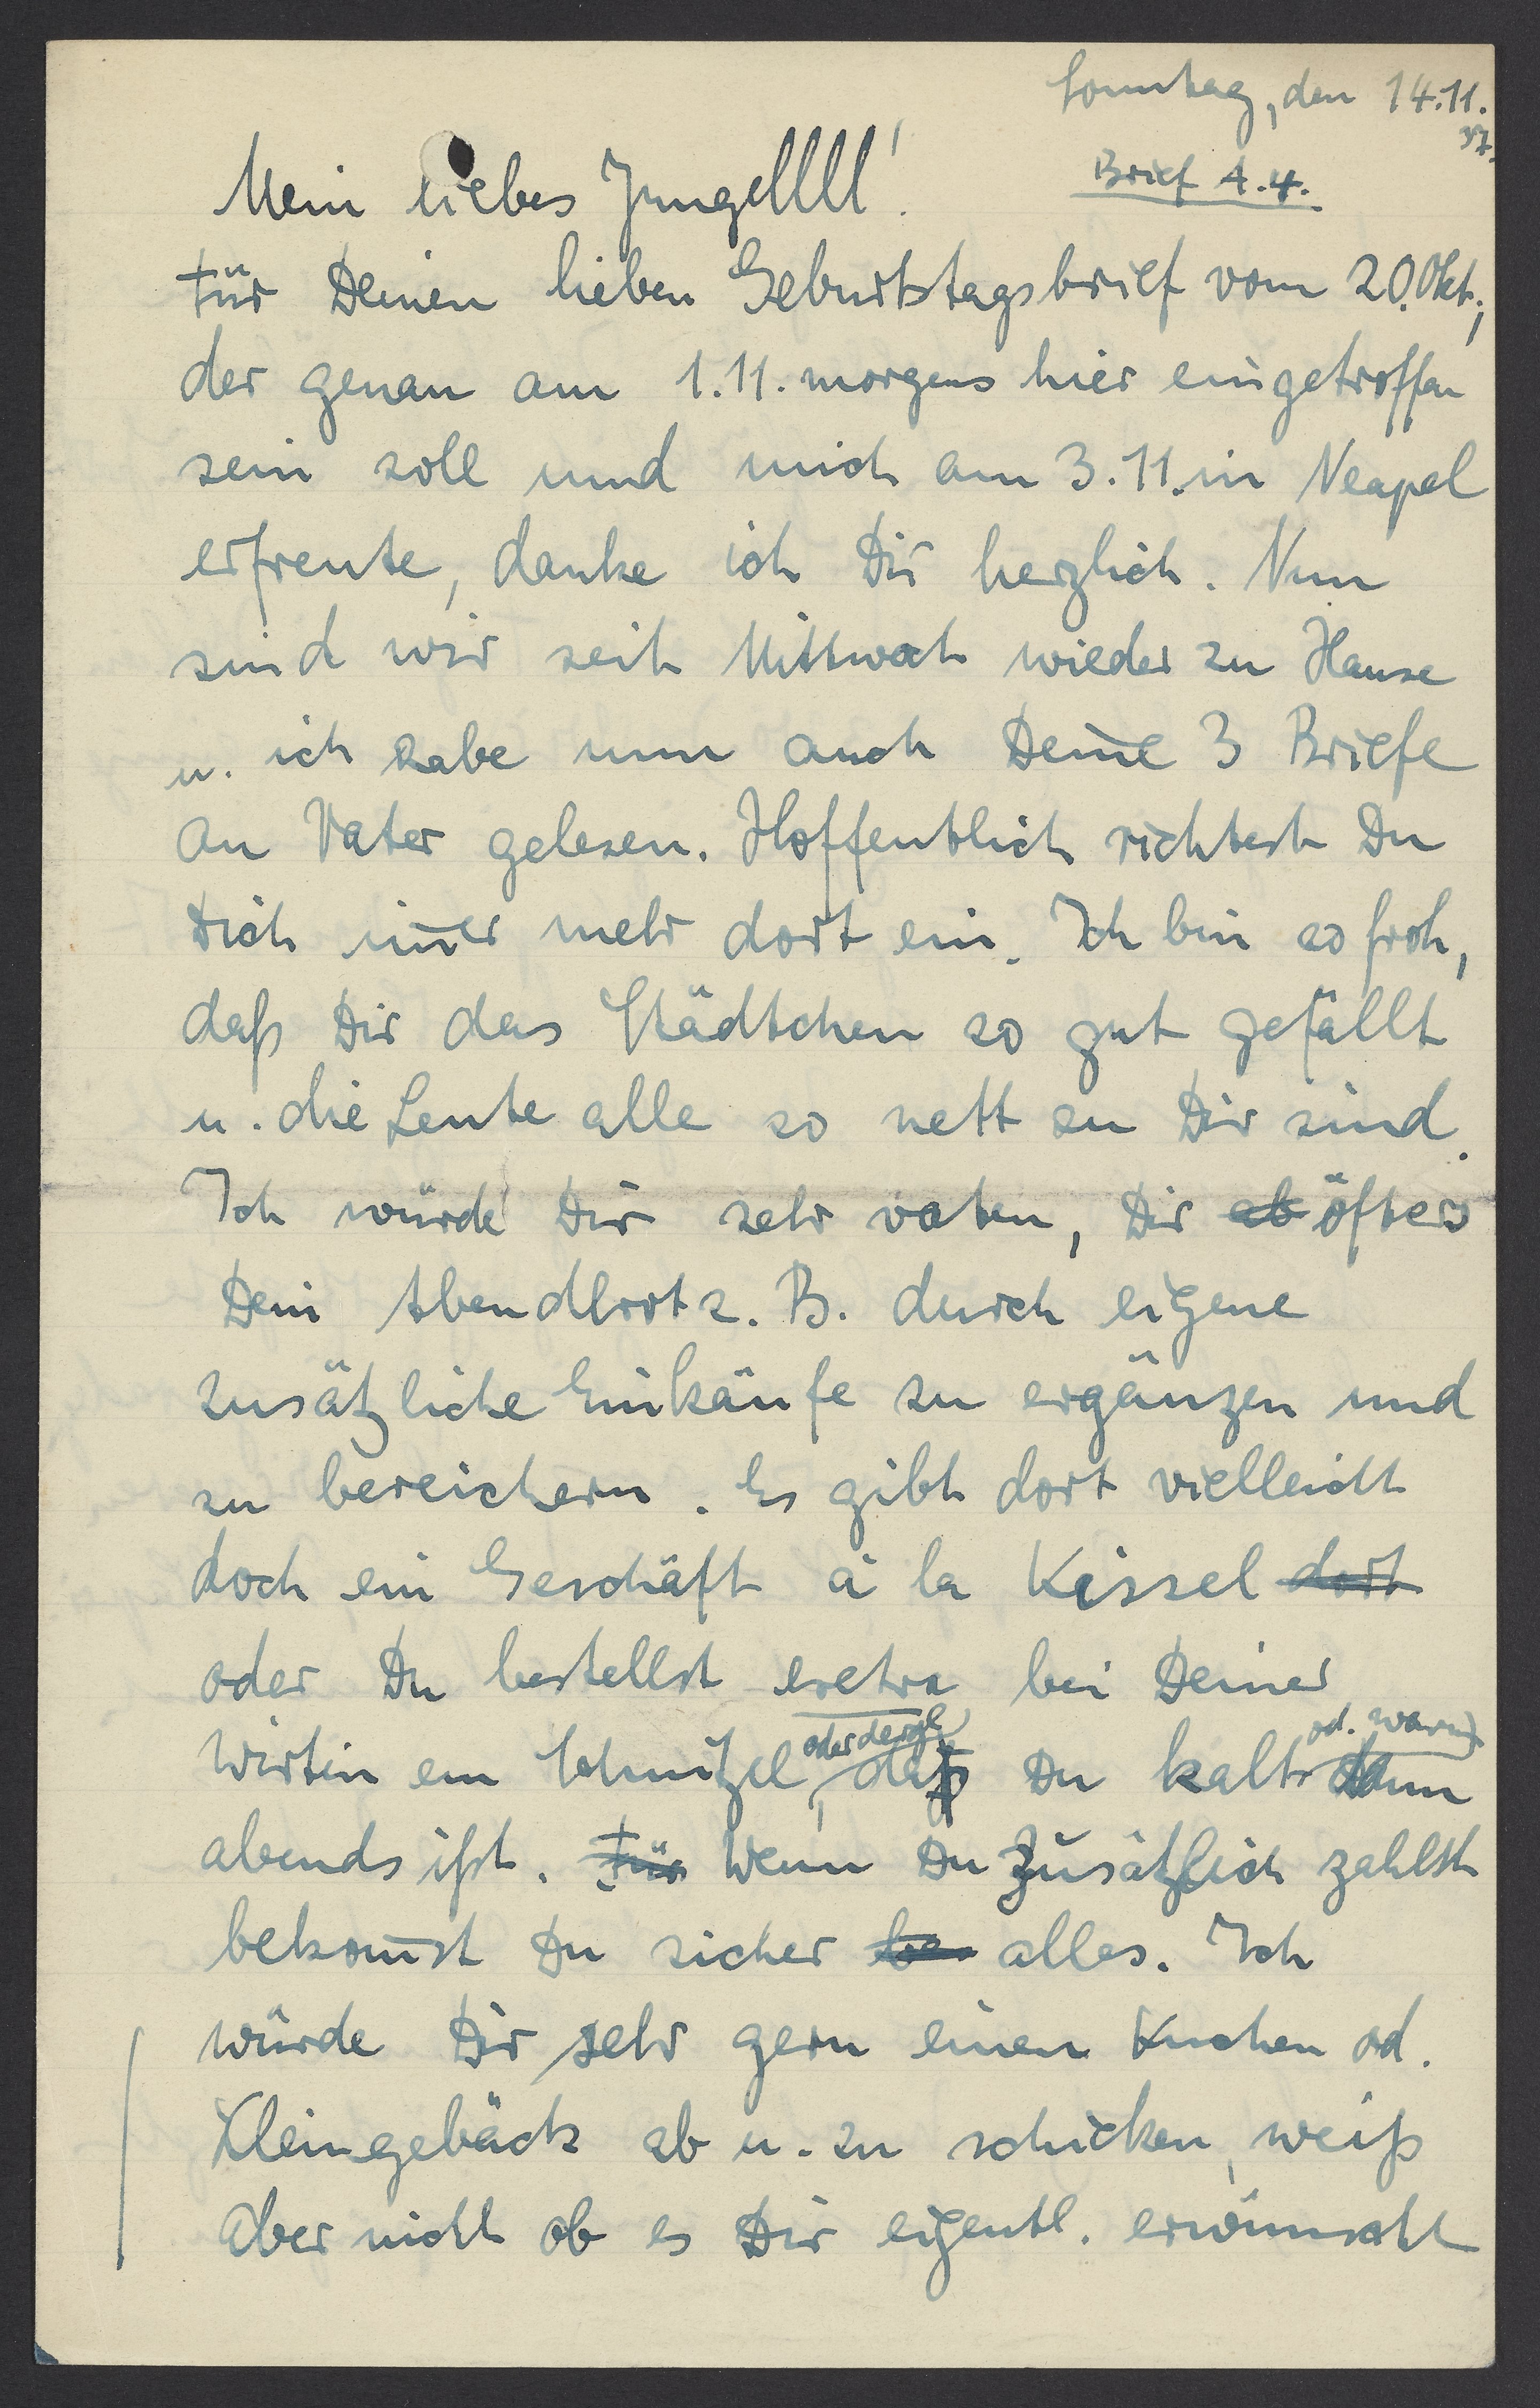 Sonntag, den 14.11.
37.
Brief A.4.
Mein liebes Jungellll!
Für Deinen lieben Geburtstagsbrief vom 20. Okt.,
der genau am 1.11. morgens hier eingetroffen
sein soll und mich am 3.11. in Neapel
erfreute, danke ich Dir herzlich. Nun
sind wir seit Mittwoch wieder zu Hause
u. ich habe nun auch Deine 3 Briefe
an Vater gelesen. Hoffentlich richtest Du
Dich im̄er mehr dort ein. Ich bin so froh,
daß Dir das Städtchen so gut gefällt
u. die Leute alle so nett zu Dir sind.
Ich würde Dir sehr raten, Dir ab öfters
Dein Abendbrot z. B. durch eigene
zusätzliche Einkäufe zu ergänzen und
zu bereichern. Es gibt dort vielleicht
doch ein Geschäft à la Kissel dort
oder Du bestellst extra bei Deiner
oder dergl. od. warm
Wirtin ein Schnitzel, daß Du kalt dann
abends ißt. Für Wenn Du zusätzlich zahlst
bekom̄st Du sicher be alles. Ich
würde Dir sehr gern einen Kuchen od.
Kleingebäck ab u. zu schicken, weiß
aber nicht ob es Dir eigentl. erwünscht